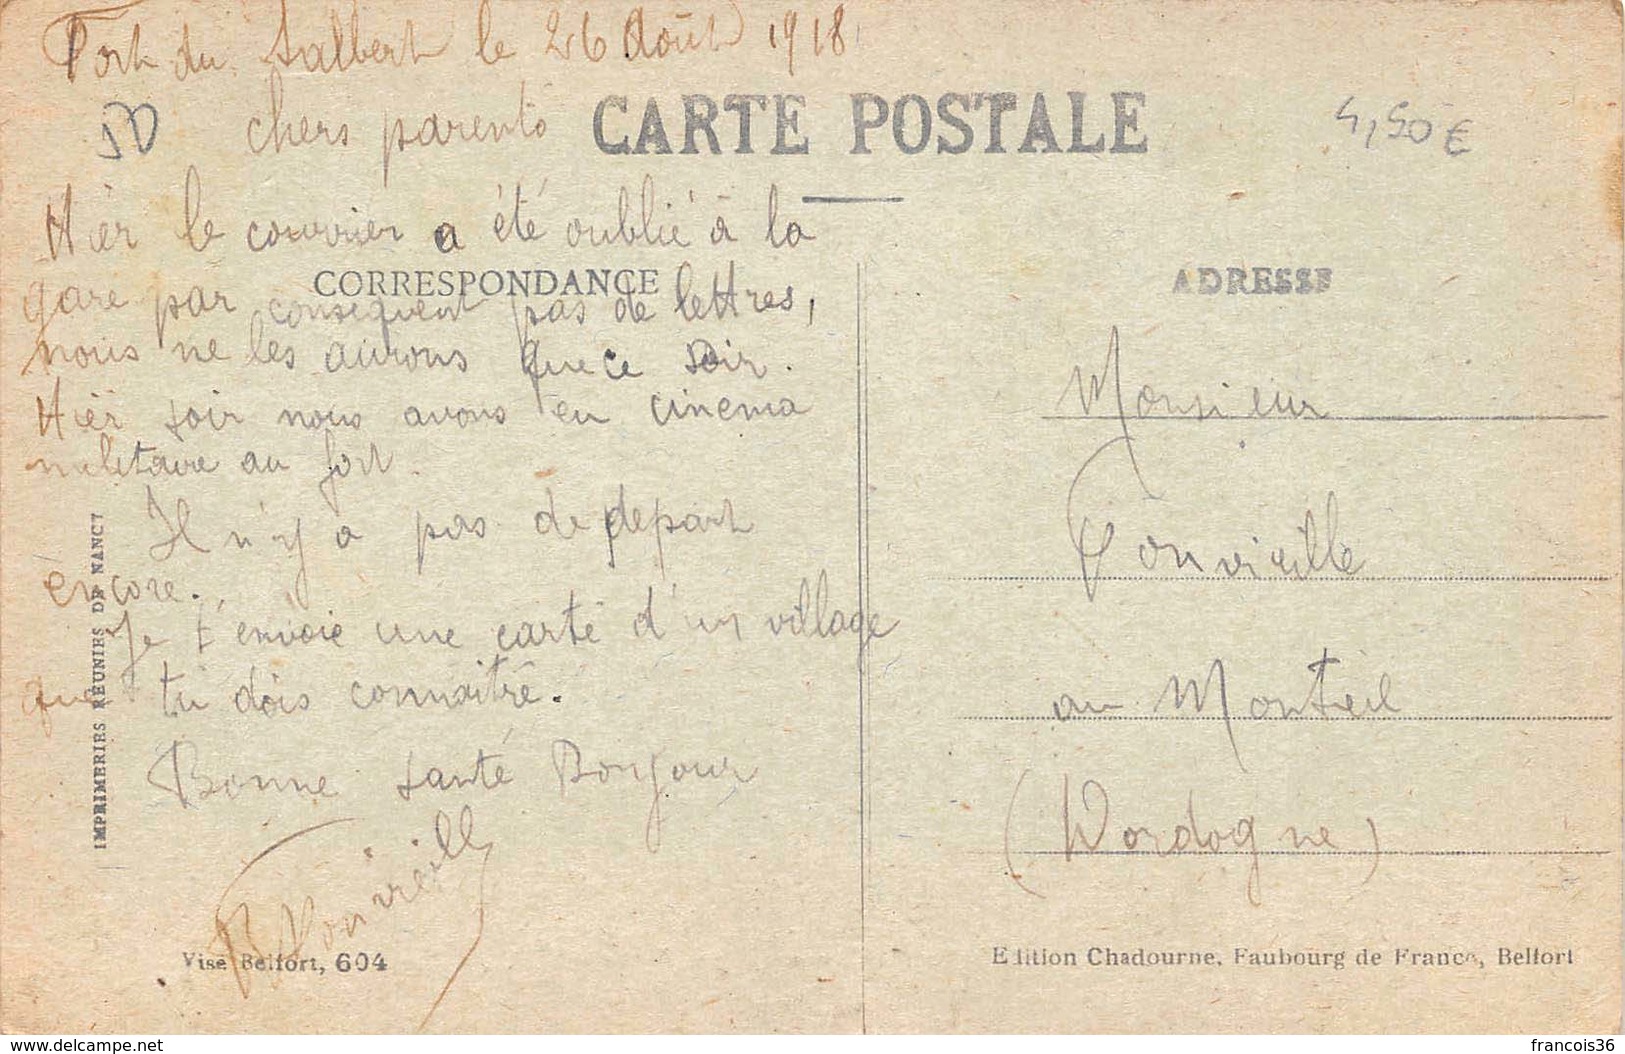 Fort du Salbert le 26 Août 1918
chers parents
CARTE POSTALE
4,50€
Hier le courrier a été oublié à la
CORRESPONDANCE
gare par consequent pas de lettres,
nous ne les aurons que ce soir.
Hier soir nous avons eu cinema
militaire au fort.
Il n'y a pas de depart
encore.
Je t'envoie une carte d'un village
que tu dois connaitre.
Bonne santé Bonjour
Visé Belfort, 604
IMPRIMERIES RÉUNIES DE NANCY
ADRESSE
Monsieur
au Monteil
(Dordogne)
Edition Chadourne, Faubourg de France, Belfort
www.delcampe.net
francois36